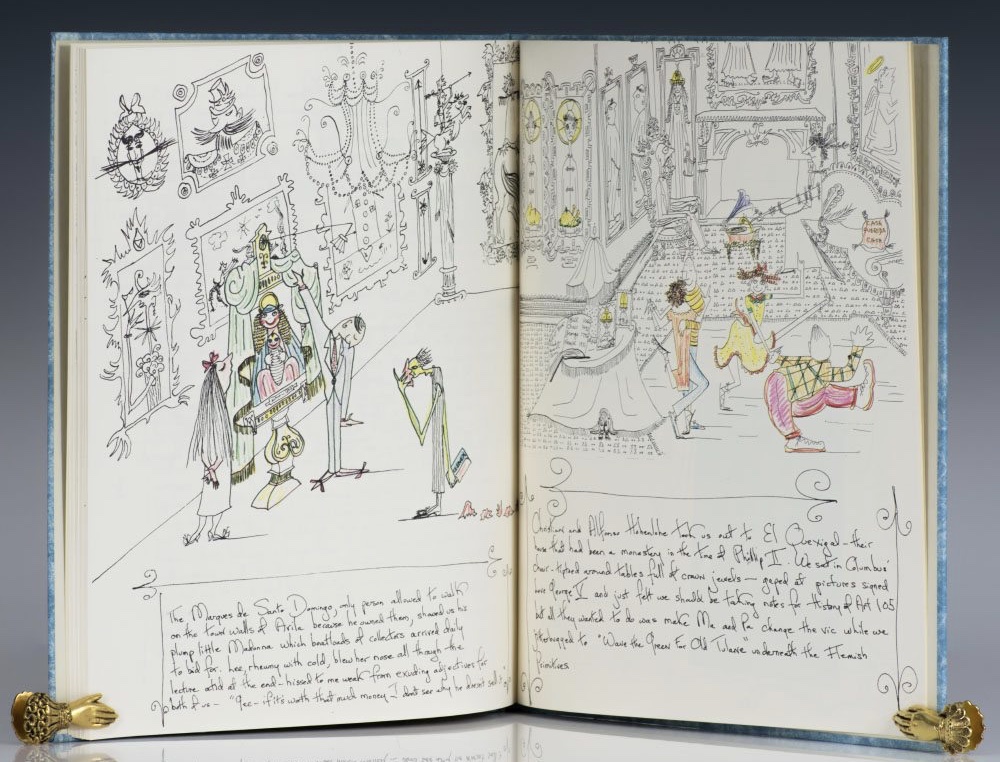 The Marques de Santo Domingo, only person allowed to walk
on the town walls of Avila because he owned them, showed us his
plump little Madonna which boatloads of collectors arrived daily
to bid for. Lee, rheumy with cold, blew her nose all though the
lecture and at the end - hissed to me weak from exuding adjectives for
both of us - "Gee - if it's worth that much money I don't see why he doesn't sell it"
CASA
CASA
Christian and Alfonso Hohenlohe took us out to El Quexigal - their
house that had been a monastery in the time of Phillip II. We sat in Columbus'
chair - tiptoed around tables full of crown jewels - gaped at pictures signed
love George V and just felt we should be taking notes for History of Art 105
but all they wanted to do was make Ma and Pa change the vic while we
jitterbugged to "Wave the Green For Old Tulane" underneath the Flemish
primitives